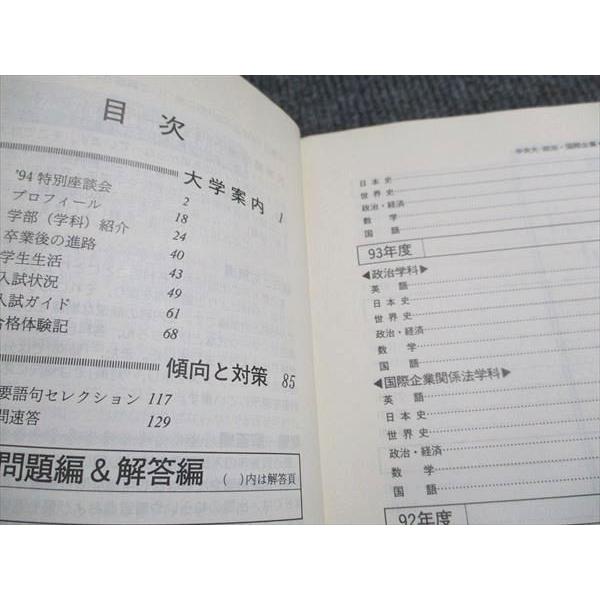 目次
大学案内 1
'94特別座談会 2
プロフィール 18
学部(学科)紹介 24
卒業後の進路 40
学生生活 43
入試状況 49
入試ガイド 61
合格体験記 68
傾向と対策 85
要語句セレクション 117
問速答 129
問題編&解答編 ( )内は解答頁
中央大-政治・国際企業
日本史
世界史
政治・経済
数学
国語
93年度
◀政治学科▶
英語
日本史
世界史
政治・経済
数学
国語
◀国際企業関係法学科▶
英語
日本史
世界史
政治・経済
数学
国語
92年度